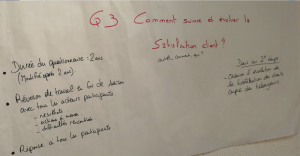 Q 3 Comment suivre et évaluer la
Satisfaction client ?
Durée du questionnaire : 2 ans
(Modifié après 2 ans)
Réunion de travail en fin de saison
avec tous les acteurs participants
- résultats
- actions à mener
- difficultés rencontrées
Réponse à tous les participants
Dans un 2e temps
- Mesure d'évolution de
la satisfaction des clients
auprès des